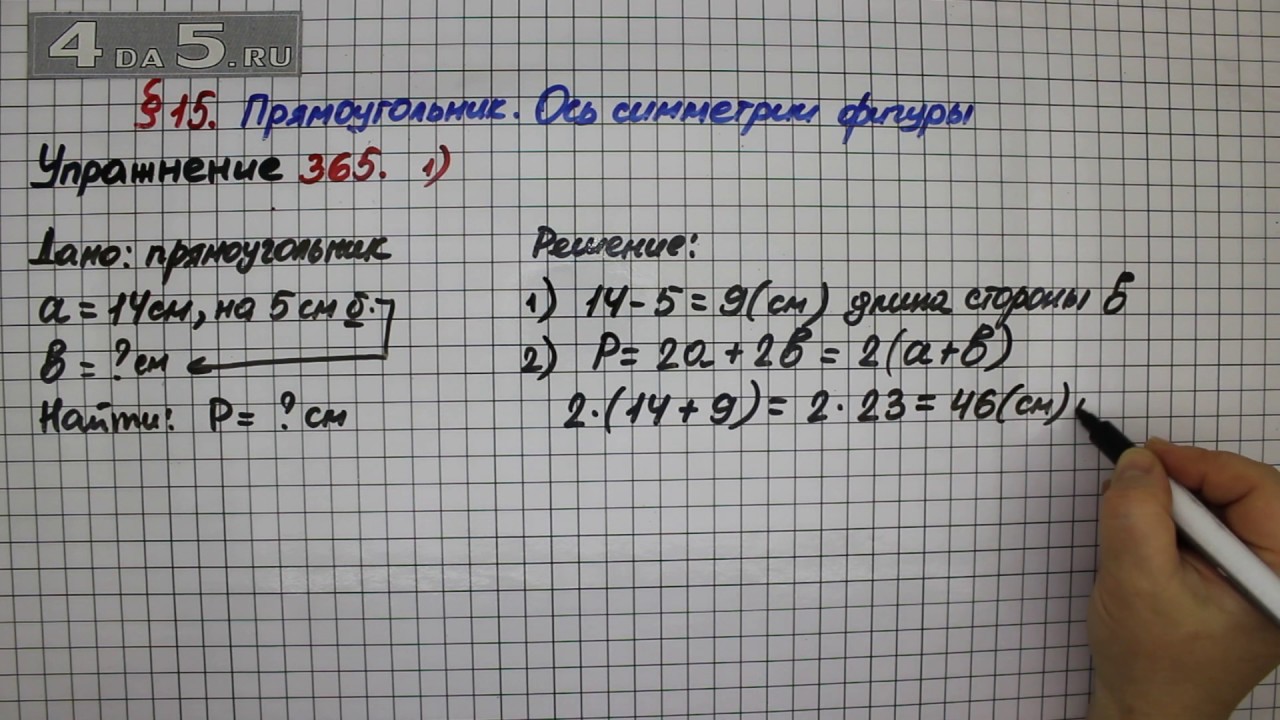 4DA5.RU
§ 15. Прямоугольник. Ось симметрии фигуры
Упражнение 365. 1)
Дано: прямоугольник
a = 14 см, на 5 см б.
b = ? см
Найти: P = ? см
Решение:
1) 14 - 5 = 9 (см) длина стороны b
2) P = 2a + 2b = 2(a + b)
2 · (14 + 9) = 2 · 23 = 46 (см)